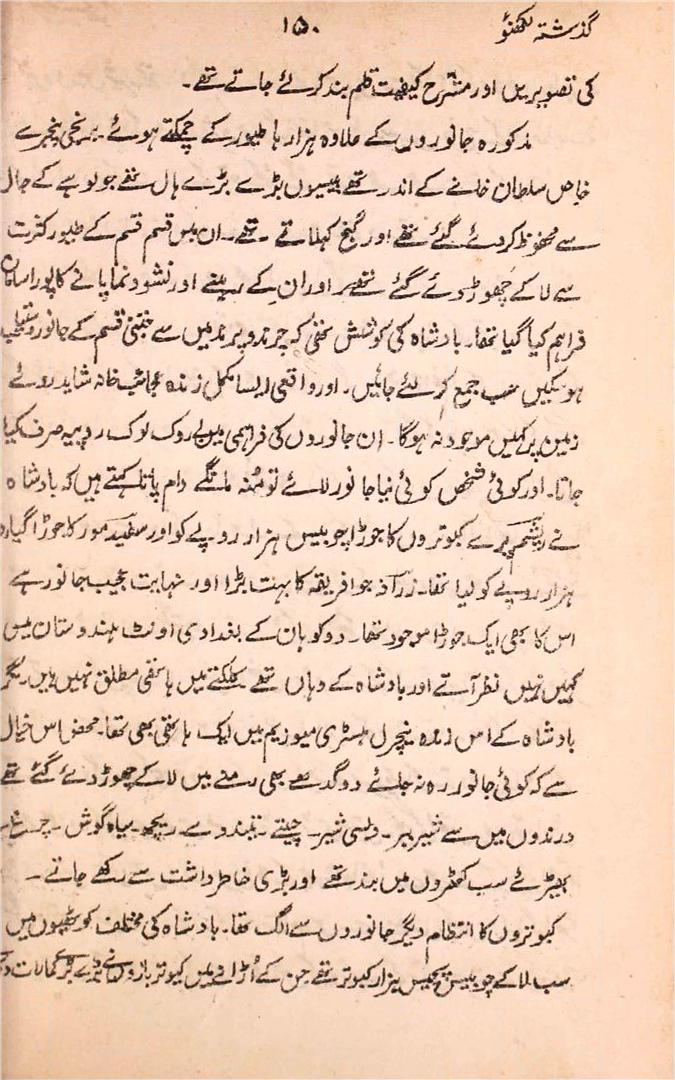 گذشتہ لکھنؤ ۱۵۰
کی تصویریں اور مشرح کیفیت قلم بند کرلئے جاتے تھے۔
مذکورہ جانوروں کے علاوہ ہزارہا طیور کے چمکتے ہوئے۔ برنجی پنجرے
خاص سلطان خانے کے اندر تھے بیسیوں بڑے بڑے ہال تھے جو لوہے کے جال
سے محفوظ کردئے گئے تھے اور گنج کہلاتے۔ تھے۔ ان میں قسم قسم کے طیور کثرت
سے لاکے چھوڑ دئے گئے تھے اور ان کے رہنے اور نشوونما پانے کا پورا سامان
فراہم کیا گیا تھا۔ بادشاہ کی کوشش تھی کہ چرند و پرند میں سے جتنی قسم کے جانور دستیاب
ہوسکیں سب جمع کرلئے جائیں۔ اور واقعی ایسا مکمل زندہ عجائب خانہ شاید روئے
زمین پر کہیں موجود نہ ہوگا۔ ان جانوروں کی فراہمی میں بے روک ٹوک روپیہ صرف کیا
جاتا۔ اور کوئی شخص کوئی نیا جانور لائے تو منہ مانگے دام پاتا کہتے ہیں کہ بادشاہ
نے ریشم پرے کبوتروں کا جوڑا چوبیس ہزار روپے کو اور سفید مور کا جوڑا گیارہ
ہزار روپے کو لیا تھا۔ زرافہ جو افریقہ کا بہت بڑا اور نہایت عجیب جانور ہے
اس کا بھی ایک جوڑا موجود تھا۔ دو کوہان کے بغدادی اونٹ ہندوستان میں
کہیں نہیں نظر آتے اور بادشاہ کے وہاں تھے کلکتے میں ہاتھی مطلق نہیں ہیں۔ مگر
بادشاہ کے اس زندہ نیچرل ہسٹری میوزیم میں ایک ہاتھی بھی تھا۔ محض اس خیال
سے کہ کوئی جانور رہ نہ جائے دو گدھے بھی رمنے میں لاکے چھوڑ دئے گئے تھے
درندوں میں سے شیر ببر۔ دیسی شیر۔ چیتے۔ تیندوے۔ ریچھ۔ سیاہ گوش۔ چرغ۔
بھیڑئے سب کٹھروں میں بند تھے اور بڑی خاطر داشت سے رکھے جاتے۔
کبوتروں کا انتظام دیگر جانوروں سے الگ تھا۔ بادشاہ کی مختلف کوٹھیوں میں
سب ملا کے چوبیس پچیس ہزار کبوتر تھے جن کے اڑانے میں کبوتر بازوں نے بڑے بڑے کمالات